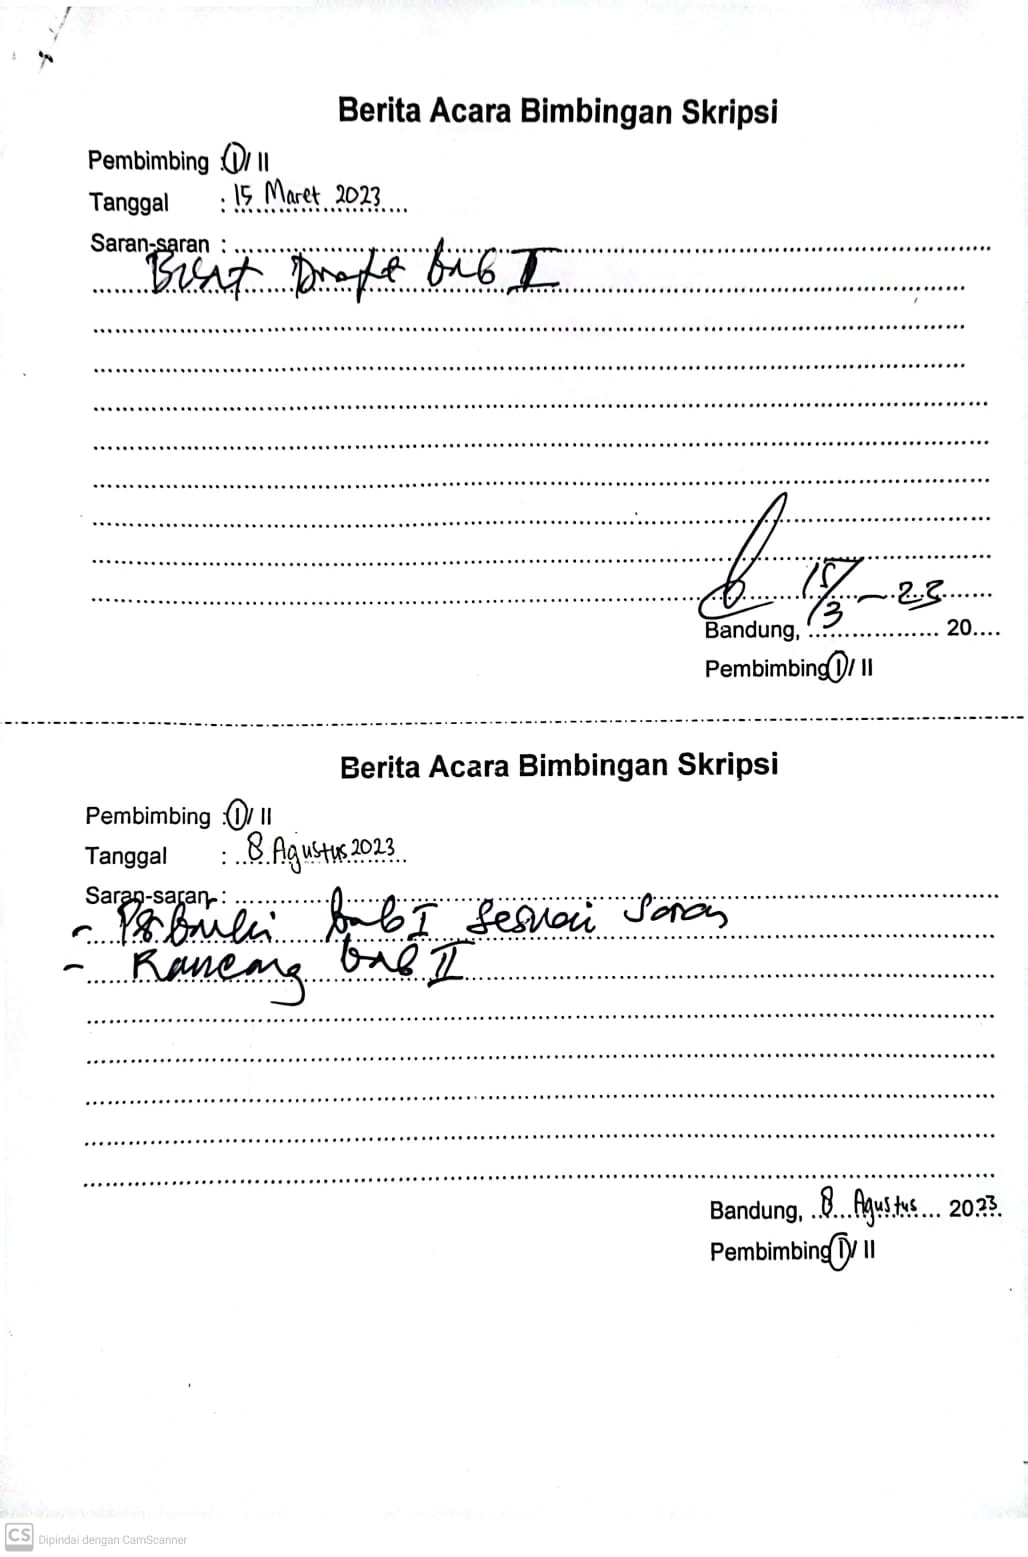 Berita Acara Bimbingan Skripsi
Pembimbing : I / II
Tanggal : 15 Maret 2023
Saran-saran :
Buat Draft bab I
15/3 - 23
Bandung, .................... 20....
Pembimbing I / II
Berita Acara Bimbingan Skripsi
Pembimbing : I / II
Tanggal : 8 Agustus 2023
Saran-saran :
- Perbaiki bab I sesuai saran
- Rancang bab II
Bandung, 8 Agustus 2023.
Pembimbing I / II
CS Dipindai dengan CamScanner